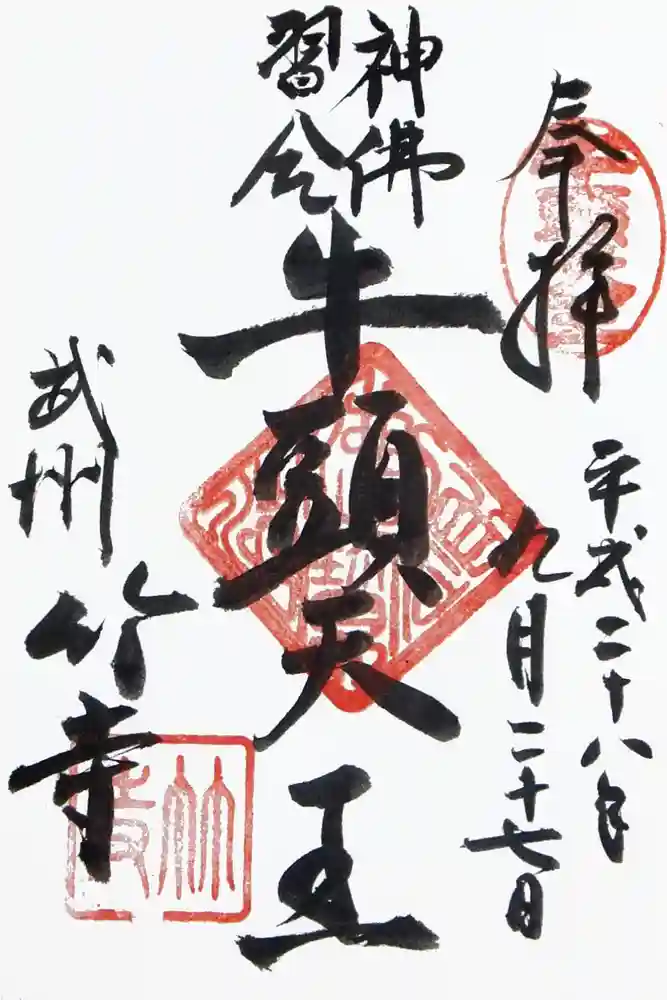 奉拝
平成二十八年
九月二十七日
神佛
習合
牛頭天王
武州
竹寺